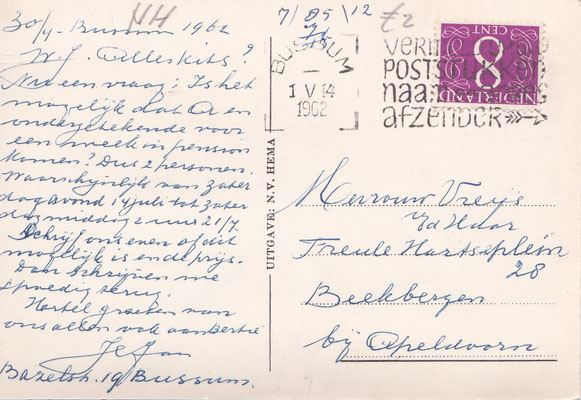 30/4 - Bussum 1962
W.f. Allerkits?
Nu een vraag? Is het
mogelijk dat A en
ondergetekende voor
een week in pension
komen? Dus 2 personen.
Waarschijnlijk van zater
dag avond 14 juli tot zater
dag middag 2 uur 21/7.
Schrijf ons even of dit
mogelijk is en de prijs.
Dan schrijven we
spoedig terug.
Hartel groeten van
ons allen ook aan Bertie
Je Jan
19 Bussum.
NH
7/ 05 \12
£2
BUSSUM
1 V 14
1962
POST
naam
afzender
8
CENT
NEDERLAND
UITGAVE: N.V. HEMA
Mevrouw
v/d Haar
Freule Hartseplein
28
Beekbergen
bij Apeldoorn